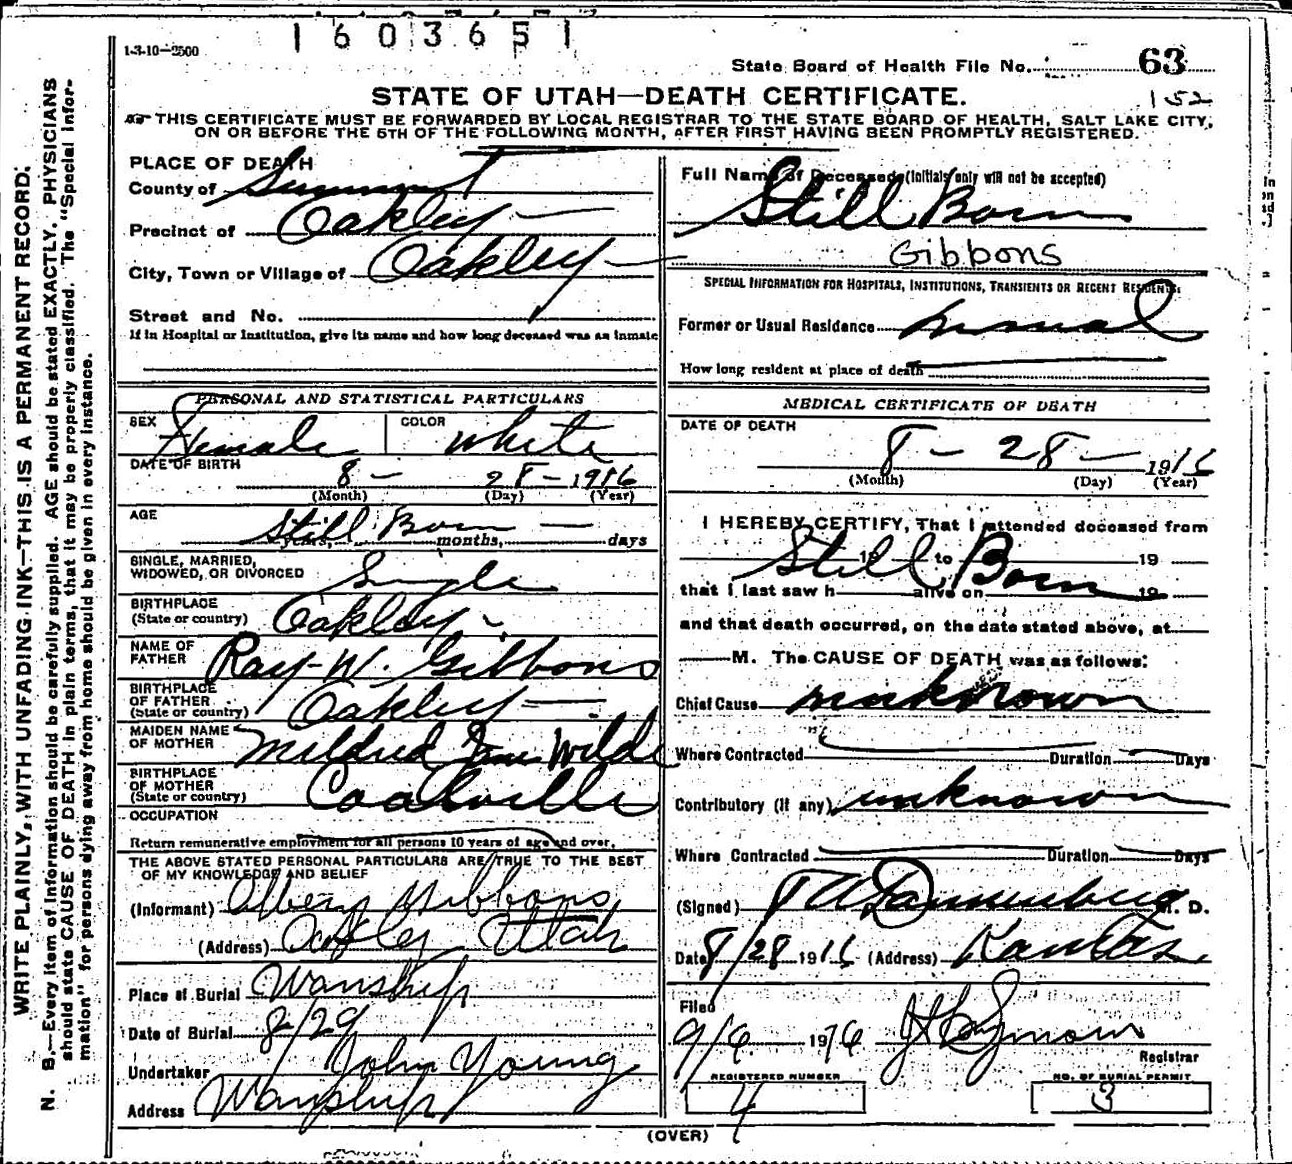 1603651
1-3-10—2500
State Board of Health File No. 63
152
STATE OF UTAH—DEATH CERTIFICATE.
THIS CERTIFICATE MUST BE FORWARDED BY LOCAL REGISTRAR TO THE STATE BOARD OF HEALTH, SALT LAKE CITY,
ON OR BEFORE THE 5TH OF THE FOLLOWING MONTH, AFTER FIRST HAVING BEEN PROMPTLY REGISTERED.
WRITE PLAINLY, WITH UNFADING INK—THIS IS A PERMANENT RECORD.
N. B.—Every item of information should be carefully supplied. AGE should be stated EXACTLY. PHYSICIANS
should state CAUSE OF DEATH in plain terms, that it may be properly classified. The "Special Infor-
mation" for persons dying away from home should be given in every instance.
PLACE OF DEATH
County of Summit
Precinct of Oakley
City, Town or Village of Oakley
Street and No.
If in Hospital or Institution, give its name and how long deceased was an inmate
PERSONAL AND STATISTICAL PARTICULARS
SEX Female COLOR White
DATE OF BIRTH 8 - 28 - 1916
(Month) (Day) (Year)
AGE Still Born
years, months, days
SINGLE, MARRIED,
WIDOWED, OR DIVORCED Single
BIRTHPLACE
(State or country) Oakley
NAME OF
FATHER Ray W. Gibbons
BIRTHPLACE
OF FATHER
(State or country) Oakley
MAIDEN NAME
OF MOTHER Mildred Jane Wilde
BIRTHPLACE
OF MOTHER
(State or country) Coalville
OCCUPATION
Return remunerative employment for all persons 10 years of age and over.
THE ABOVE STATED PERSONAL PARTICULARS ARE TRUE TO THE BEST
OF MY KNOWLEDGE AND BELIEF
(Informant) Gibbons
(Address) Oakley Utah
Place of Burial Wanship
Date of Burial 8/29
Undertaker John Young
Address Wanship
Full Name of Deceased (Initials only will not be accepted)
Still Born
Gibbons
SPECIAL INFORMATION FOR HOSPITALS, INSTITUTIONS, TRANSIENTS OR RECENT RESIDENTS.
Former or Usual Residence
How long resident at place of death
MEDICAL CERTIFICATE OF DEATH
DATE OF DEATH
8 - 28 - 1916
(Month) (Day) (Year)
I HEREBY CERTIFY, That I attended deceased from
Still Born 19 to 19
that I last saw h alive on 19
and that death occurred, on the date stated above, at
M. The CAUSE OF DEATH was as follows:
Chief Cause unknown
Where Contracted Duration Days
Contributory (if any) unknown
Where Contracted Duration Days
(Signed) Dannenberg M. D.
Date 8/28 1916 (Address) Kamas
Filed
9/6 1916
Registrar
REGISTERED NUMBER NO. OF BURIAL PERMIT
4 3
(OVER)